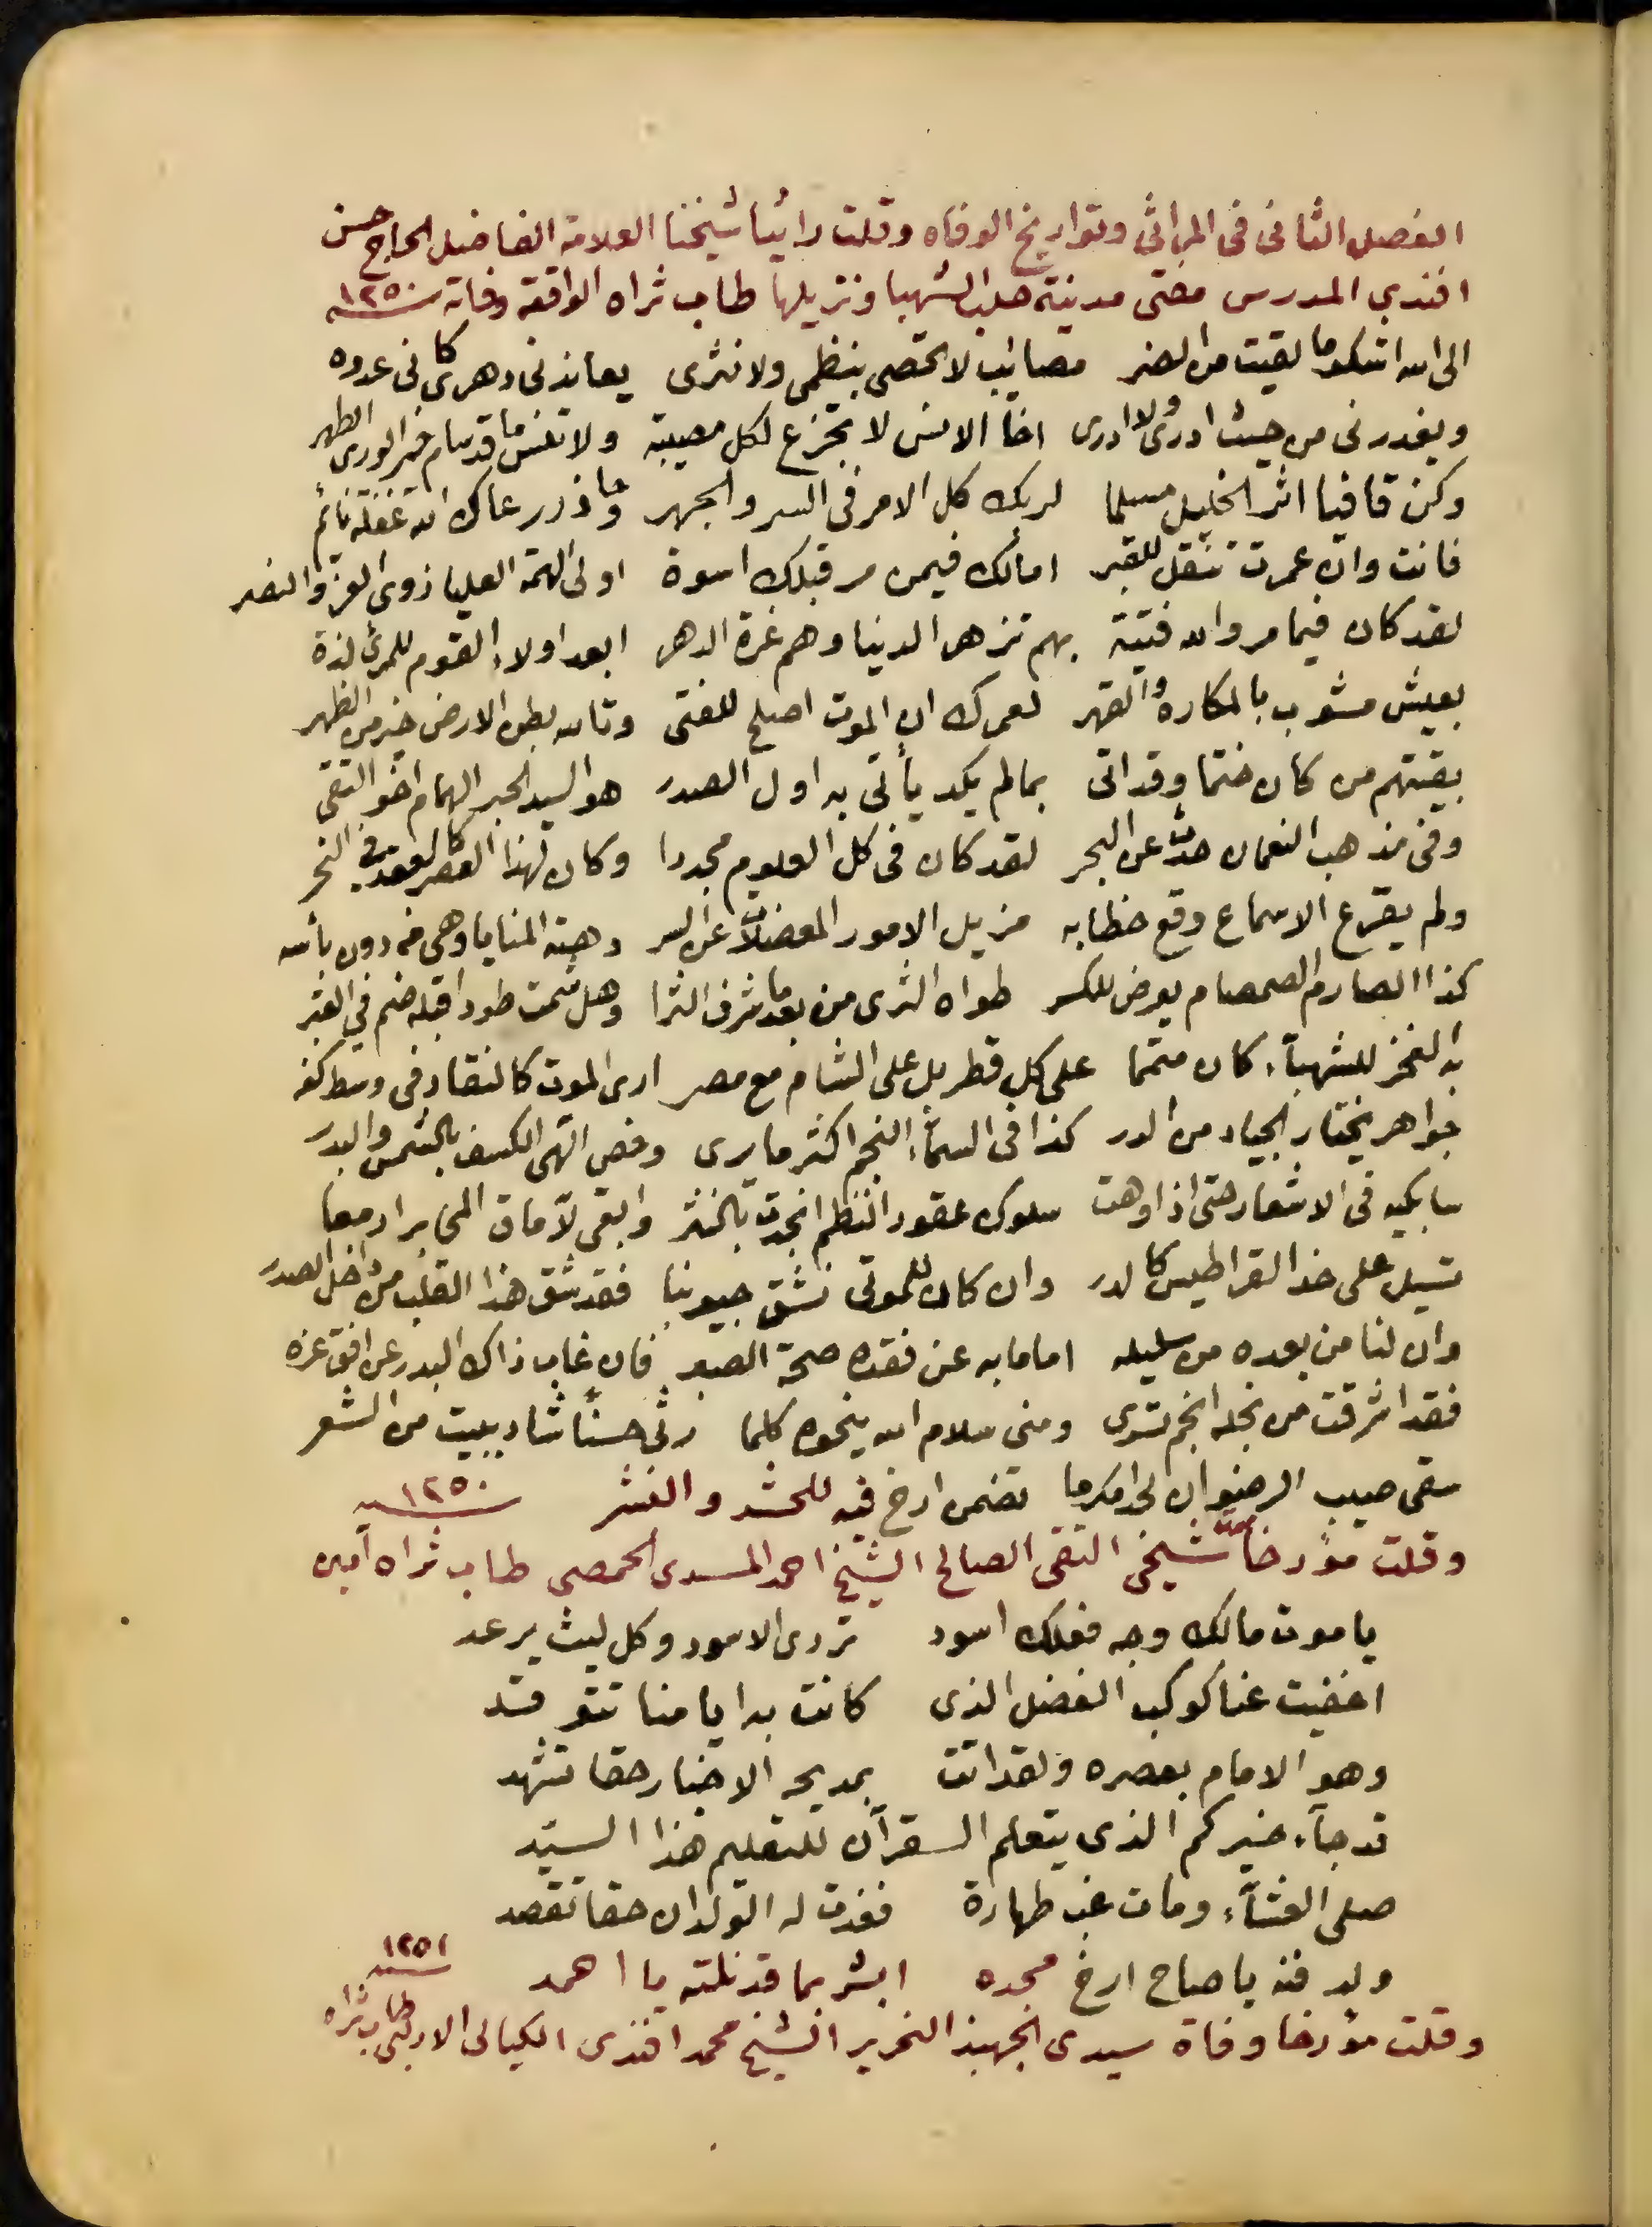 الفصل الثانى فى المراثى وتواريخ الوفاه وقلت راثيا شيخنا العلامة الفاضل الحاج حسن
افندى المدرس مفتى مدينة حلب الشهبا ونزيلها طاب ثراه الواقعة وفاته سنة ١٢٥٠
الى الله اشكو ما لقيت من الضر مصائب لا تحصى بنظمى ولا نثرى يعاندنى دهرى كانى عدوه
ويغدرنى من حيث ادرى ولا ادرى اخا الانس لا تجزع لكل مصيبة ولا تنس ما قد سام خير الورى الطهر
وكن قافيا اثر الخليل مسلما لربك كل الامر فى السر والجهر وحاذر رعاك الله غفلة نائم
فانت وان عمرت تنقل للقبر امالك فيمن مر قبلك اسوة اولى الهمة العليا ذوى العز والنصر
لقد كان فيما مر والله فتية بهم تزهر الدنيا وهم غرة الدهر ابعد اولاء القوم للمرئ لذة
بعيش مشوب بالمكاره والقهر لعمرك ان الموت اصلح للفتى وتالله بطن الارض خير من الظهر
بقيتهم من كان ختما وقد اتى بما لم يكد يأتى به اول الصدر هو السيد الحبر الهمام اخو التقى
وفى مذهب النعمان حدث عن البحر لقد كان فى كل العلوم مجددا وكان لهذا العصر كالعقد فى النحر
ولم يقرع الاسماع وقع خطابه مزيل الامور المعضلات عن السر دهته المنايا وهى من دون بأسه
كذا الصارم الصمصام يعرض للكسر طواه الثرى من بعد ما شرف الثرا وهل شمت طودا قبله ضم في القبر
به الفخر للشهبآء كان متمما على كل قطر بل على الشام مع مصر ارى الموت كالنقاد فى وسط كفه
جواهر يختار الجياد من الدر كذا فى السمآء النجم اكثر ما يرى وخص الهى الكسف بالشمس والبدر
سابكيه فى الاشعار حتى اذا وهت سلوك عقود النظم انجدت بالنثر وابقى لآماق المحابر ادمعا
تسيل على خد القراطيس كالدر وان كان للموتى نشق جيوبنا فقد شق هذا القلب من داخل الصدر
وان لنا من بعده من سليله اماما به عن فقده صحة الصبر فان غاب ذاك البدر عن افق عزه
فقد اشرقت من نجله انجم تسرى ومنى سلام الله ينحوه كلما رثى حسنًا شاد ببيت من الشعر
سقى صيب الرضوان لحدا مكرما تضمن ارخ فيه للحشر والنشر سنة ١٢٥٠
وقلت مؤرخا شيخى التقى الصالح الشيخ احمد المسدى الحمصى طاب ثراه آمين
يا موت مالك وجه فعلك اسود تردى الاسود وكل ليث يرعد
اخفيت عنا كوكب الفضل الذى كانت به ايامنا تتوقد
وهو الامام بعصره ولقد اتت بمديحه الاخبار حقا تشهد
قد جآء خيركم الذى يتعلم القرآن للتعليم هذا السيد
صلى العشآء ومات غب طهارة فغدت له الولدان حقا تقصد
ولد فنه يا صاح ارخ مجده ابشر بما قد نلته يا احمد ١٢٥١
وقلت مؤرخا وفاة سيدى الجهبذ النحرير الشيخ محمد افندى الكيالى الادلبى طاب ثراه